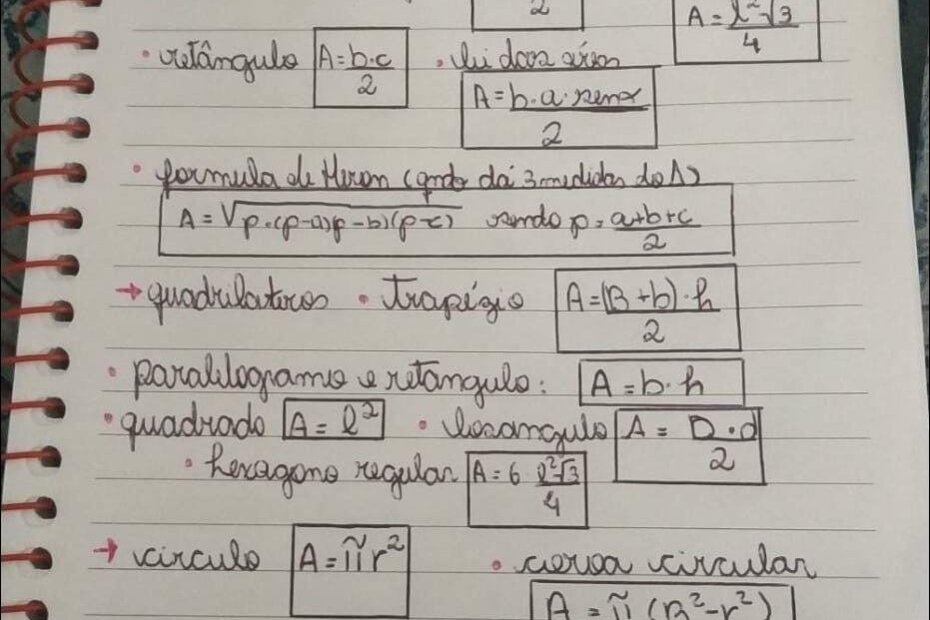 2
A = l²√3
4
• retângulo A = b·c • lei dos
2
A = b·a·senα
2
• formula de Heron (qndo dá 3 medidas do Δ)
A = √p·(p-a)(p-b)(p-c) sendo p = a+b+c
2
→ quadrilateros • Trapézio A = (B+b)·h
2
• paralelogramo e retângulo: A = b·h
• quadrado A = l² • losangulo A = D·d
2
• hexagono regular A = 6 l²√3
4
→ circulo A = πr² • coroa circular
A = π(R²-r²)